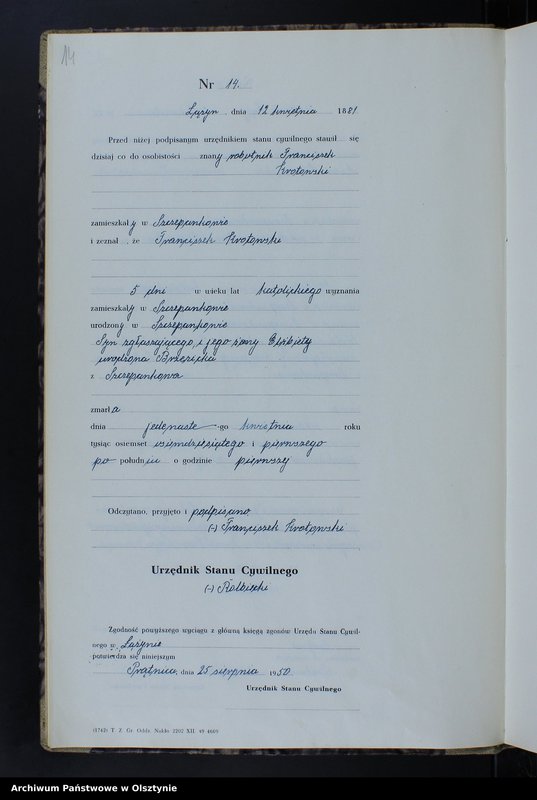 14
Nr 14.
Łążyn, dnia 12 kwietnia 1881
Przed niżej podpisanym urzędnikiem stanu cywilnego stawił się
dzisiaj co do osobistości znany robotnik Franciszek
Krotowski
zamieszkały w Szczepankowie
i zeznał, że Franciszek Krotowski
5 dni w wieku lat katolickiego wyznania
zamieszkały w Szczepankowie
urodzony w Szczepankowie
Syn zgłaszającego i jego żony Elżbiety
urodzona Brzezicka
z Szczepankowa
zmarła
dnia jedenaste-go kwietnia roku
tysiąc osiemset osiemdziesiątego i pierwszego
po południu o godzinie pierwszy
Odczytano, przyjęto i podpisano
(-) Franciszek Krotowski
Urzędnik Stanu Cywilnego
(-)
Zgodność powyższego wyciągu z główną księgą zgonów Urzędu Stanu Cywil-
nego w Łążynie
potwierdza się niniejszym
Prątnica, dnia 25 sierpnia 1950
Urzędnik Stanu Cywilnego
(1742) T. Z. Gr. Oddz. Nakło 2202 XII. 49 4669
Archiwum Państwowe w Olsztynie